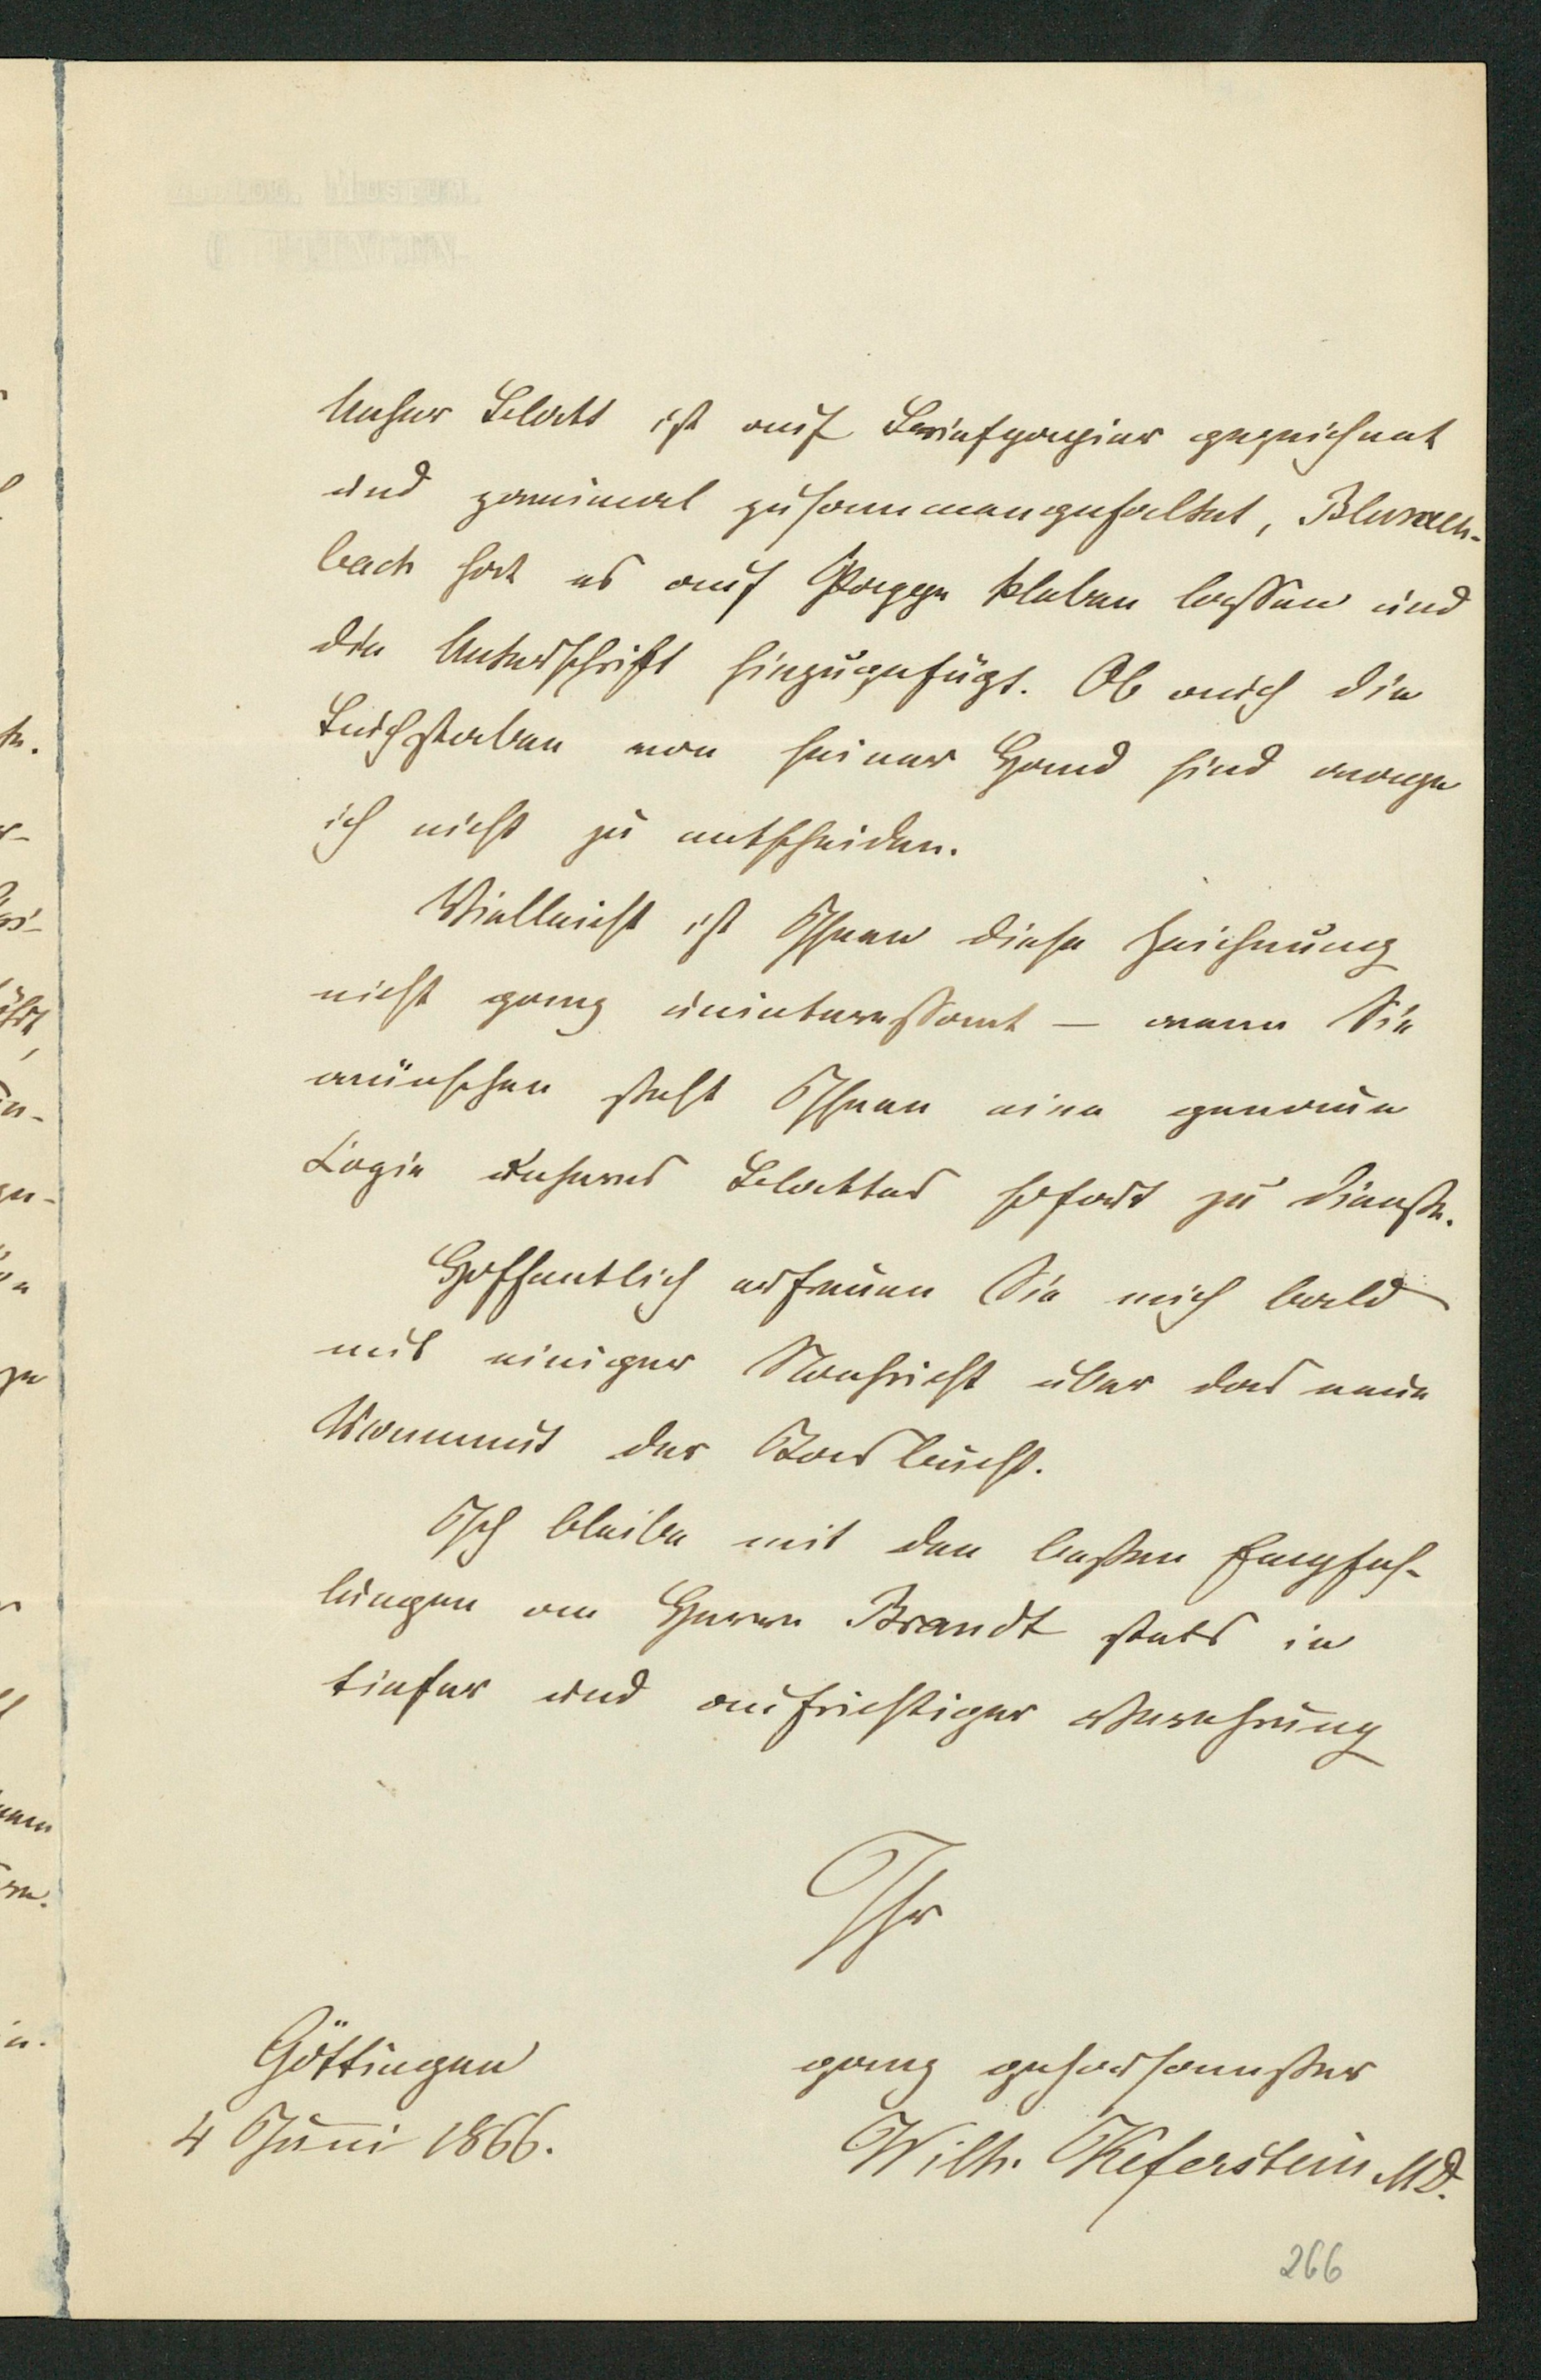 Unser Blatt ist auf Briefpapier gezeichnet
und zweimal zusammengefaltet, Blumen-
bach hat es auf Pappe kleben lassen und
die Unterschrift hinzugefügt. Ob auch die
Buchstaben von seiner Hand sind wage
ich nicht zu entscheiden.
Vielleicht ist Ihnen diese Zeichnung
nicht ganz uninteressant — wenn Sie
wünschen steht Ihnen eine genaue
Copie unseres Blattes sofort zu Dienste.
Hoffentlich erfreuen Sie mich bald
mit einiger Nachricht über das neue
Mammut der Tasbucht.
Ich bleibe mit den besten Empfeh-
lungen an Herrn Brandt stets in
tiefer und aufrichtiger Verehrung
Ihr
Göttingen
4 Juni 1866.
ganz gehorsamster
Wilh. Keferstein MD.
266